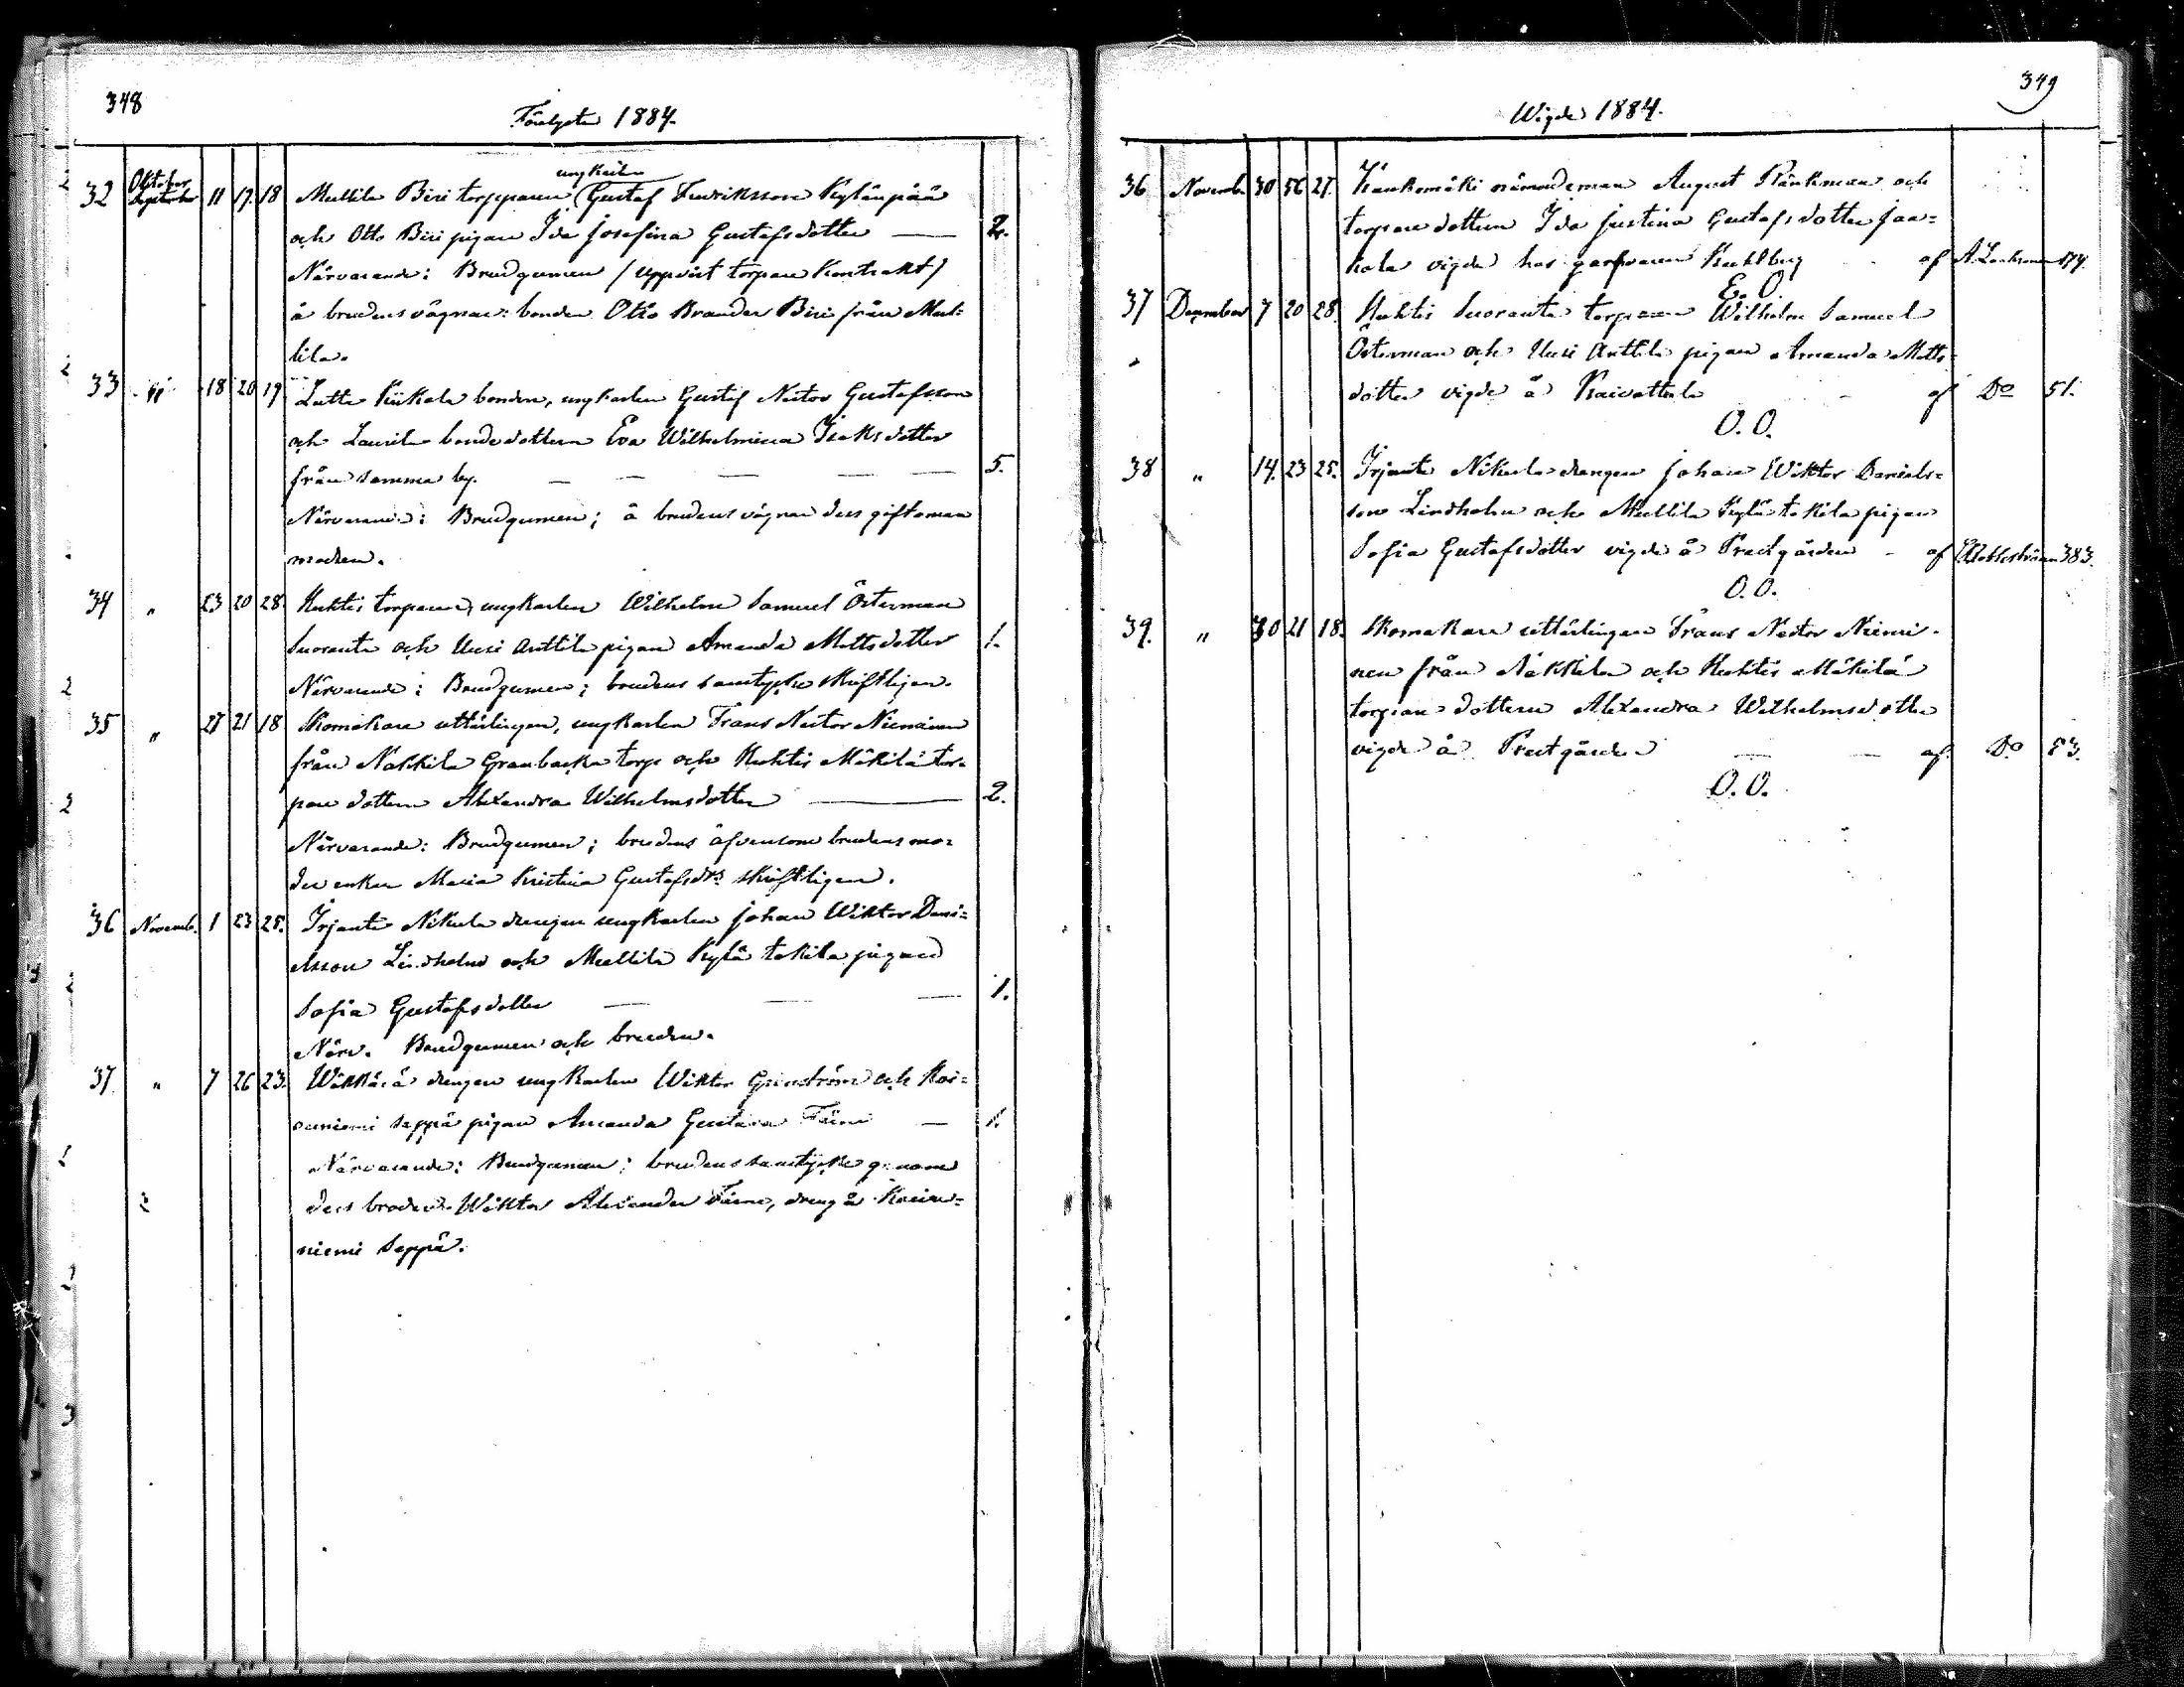 348
Förelysta 1884.
ungkarlen
32 Oktober 11 17. 18 Mullila Biri torpparen Gustaf Fredriksson Kylänpää
och Otto Biri pigan Ida Josefina Gustafsdotter — 2.
Närvarande: Brudgumen / uppvist torpare Kontrakt /
å brudens vägnar: bonden Otto Brander Biri från Mul-
lila.
33 " 18 20 19 Kiikala bonden, ungkarlen Gustaf Nestor Gustafsson
och Laurila bondedottern Eva Wilhelmina Isaksdotter
från samma by. — — — — 5.
Närvarande: Brudgumen; å brudens vägnar dess giftoman
modren.
34 " 23 20 28. Huhtis torparen, ungkarlen Wilhelm Samuel Österman
Suoranta och Uusi Anttila pigan Amanda Mattsdotter 1.
Närvarande: Brudgumen; brudens samtycke skriftligen.
35 " 27 21 18 Skomakare utlärlingen, ungkarlen Frans Nestor Nieminen
från Nakkila Granbacka torp och Huhtis Mäkilä tor-
pare dottern Alexandra Wilhelmsdotter — 2.
Närvarande: Brudgumen; brudens äfvensom brudens mo-
der enkan Maria Kristina Gustafsdrs skriftligen.
36 Novemb. 1 23 25. Irjanti Nikula drengen ungkarlen Johan Wiktor Dani-
elsson Lindholm och Mullila Kylä takila pigan
Sofia Gustafsdotter — — — 1.
Närv. Brudgumen och bruden.
37. " 7 26 23. drengen ungkarlen Wiktor Grönström och Koi-
vuniemi Seppä pigan Amanda Gustava — 1.
Närvarande: Brudgumen; brudens samtycke genom
dess broder Wiktor Alexander dreng å Koivu-
niemi Seppä.
349
Wigde 1884.
36 Novemb. 30 56 27. Kaukomäki nämndeman August Pänkman och
torpare dottern Ida Justina Gustafsdotter Jaa-
kola vigde hos garfvaren Kuhlberg af A. Lönkman 174.
E. O.
37 December 7 20 28. Huhtis Suoranta torparen Wilhelm Samuel
Österman och Uusi Anttila pigan Amanda Matts-
dotter vigde å Raivattula af Do 51.
O. O.
38 " 14. 23 25. Irjanti Nikula drengen Johan Wiktor Daniels-
son Lindholm och Mullila Kylä takila pigan
Sofia Gustafsdotter vigde å Prestgården - af 383.
O. O.
39. " 30 21 18. Skomakare utlärlingen Frans Nestor Niemi-
nen från Nakkila och Huhtis Mäkilä
torpare dottern Alexandra Wilhelmsdotter
vigde å Prestgården — — af Do 53.
O. O.